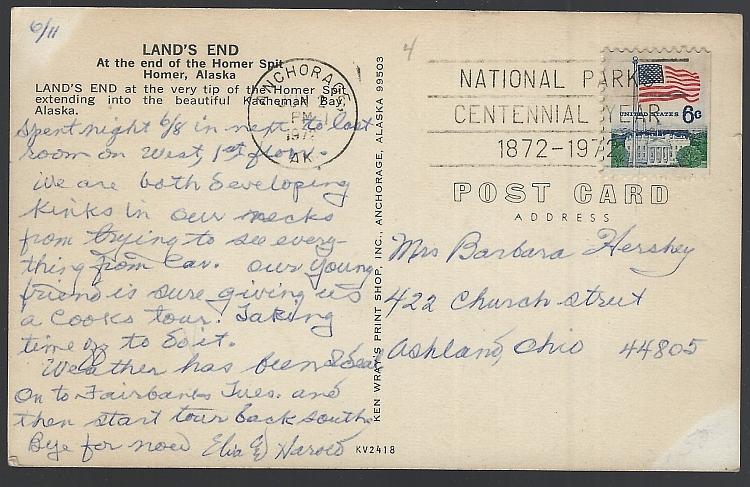 6/11
LAND'S END
At the end of the Homer Spit
Homer, Alaska
LAND'S END at the very tip of the Homer Spit
extending into the beautiful Kachemak Bay,
Alaska.
Spent night 6/8 in next to last
room on West, 1st floor.
We are both developing
kinks in our necks
from trying to see every-
thing from car. Our young
friend is sure giving us
a Cooks tour. Taking
time off to do it.
Weather has been
On to Fairbanks Tues. and
then start tour back south.
Bye for now Harold
KEN WRAY'S PRINT SHOP, INC., ANCHORAGE, ALASKA 99503
KV2418
4
ANCHORAGE
PM
AK
NATIONAL PARK
CENTENNIAL YEAR
1872-1972
UNITED STATES 6c
POST CARD
ADDRESS
Mrs Barbara Hershey
422 Church Street
Ashland, Ohio 44805